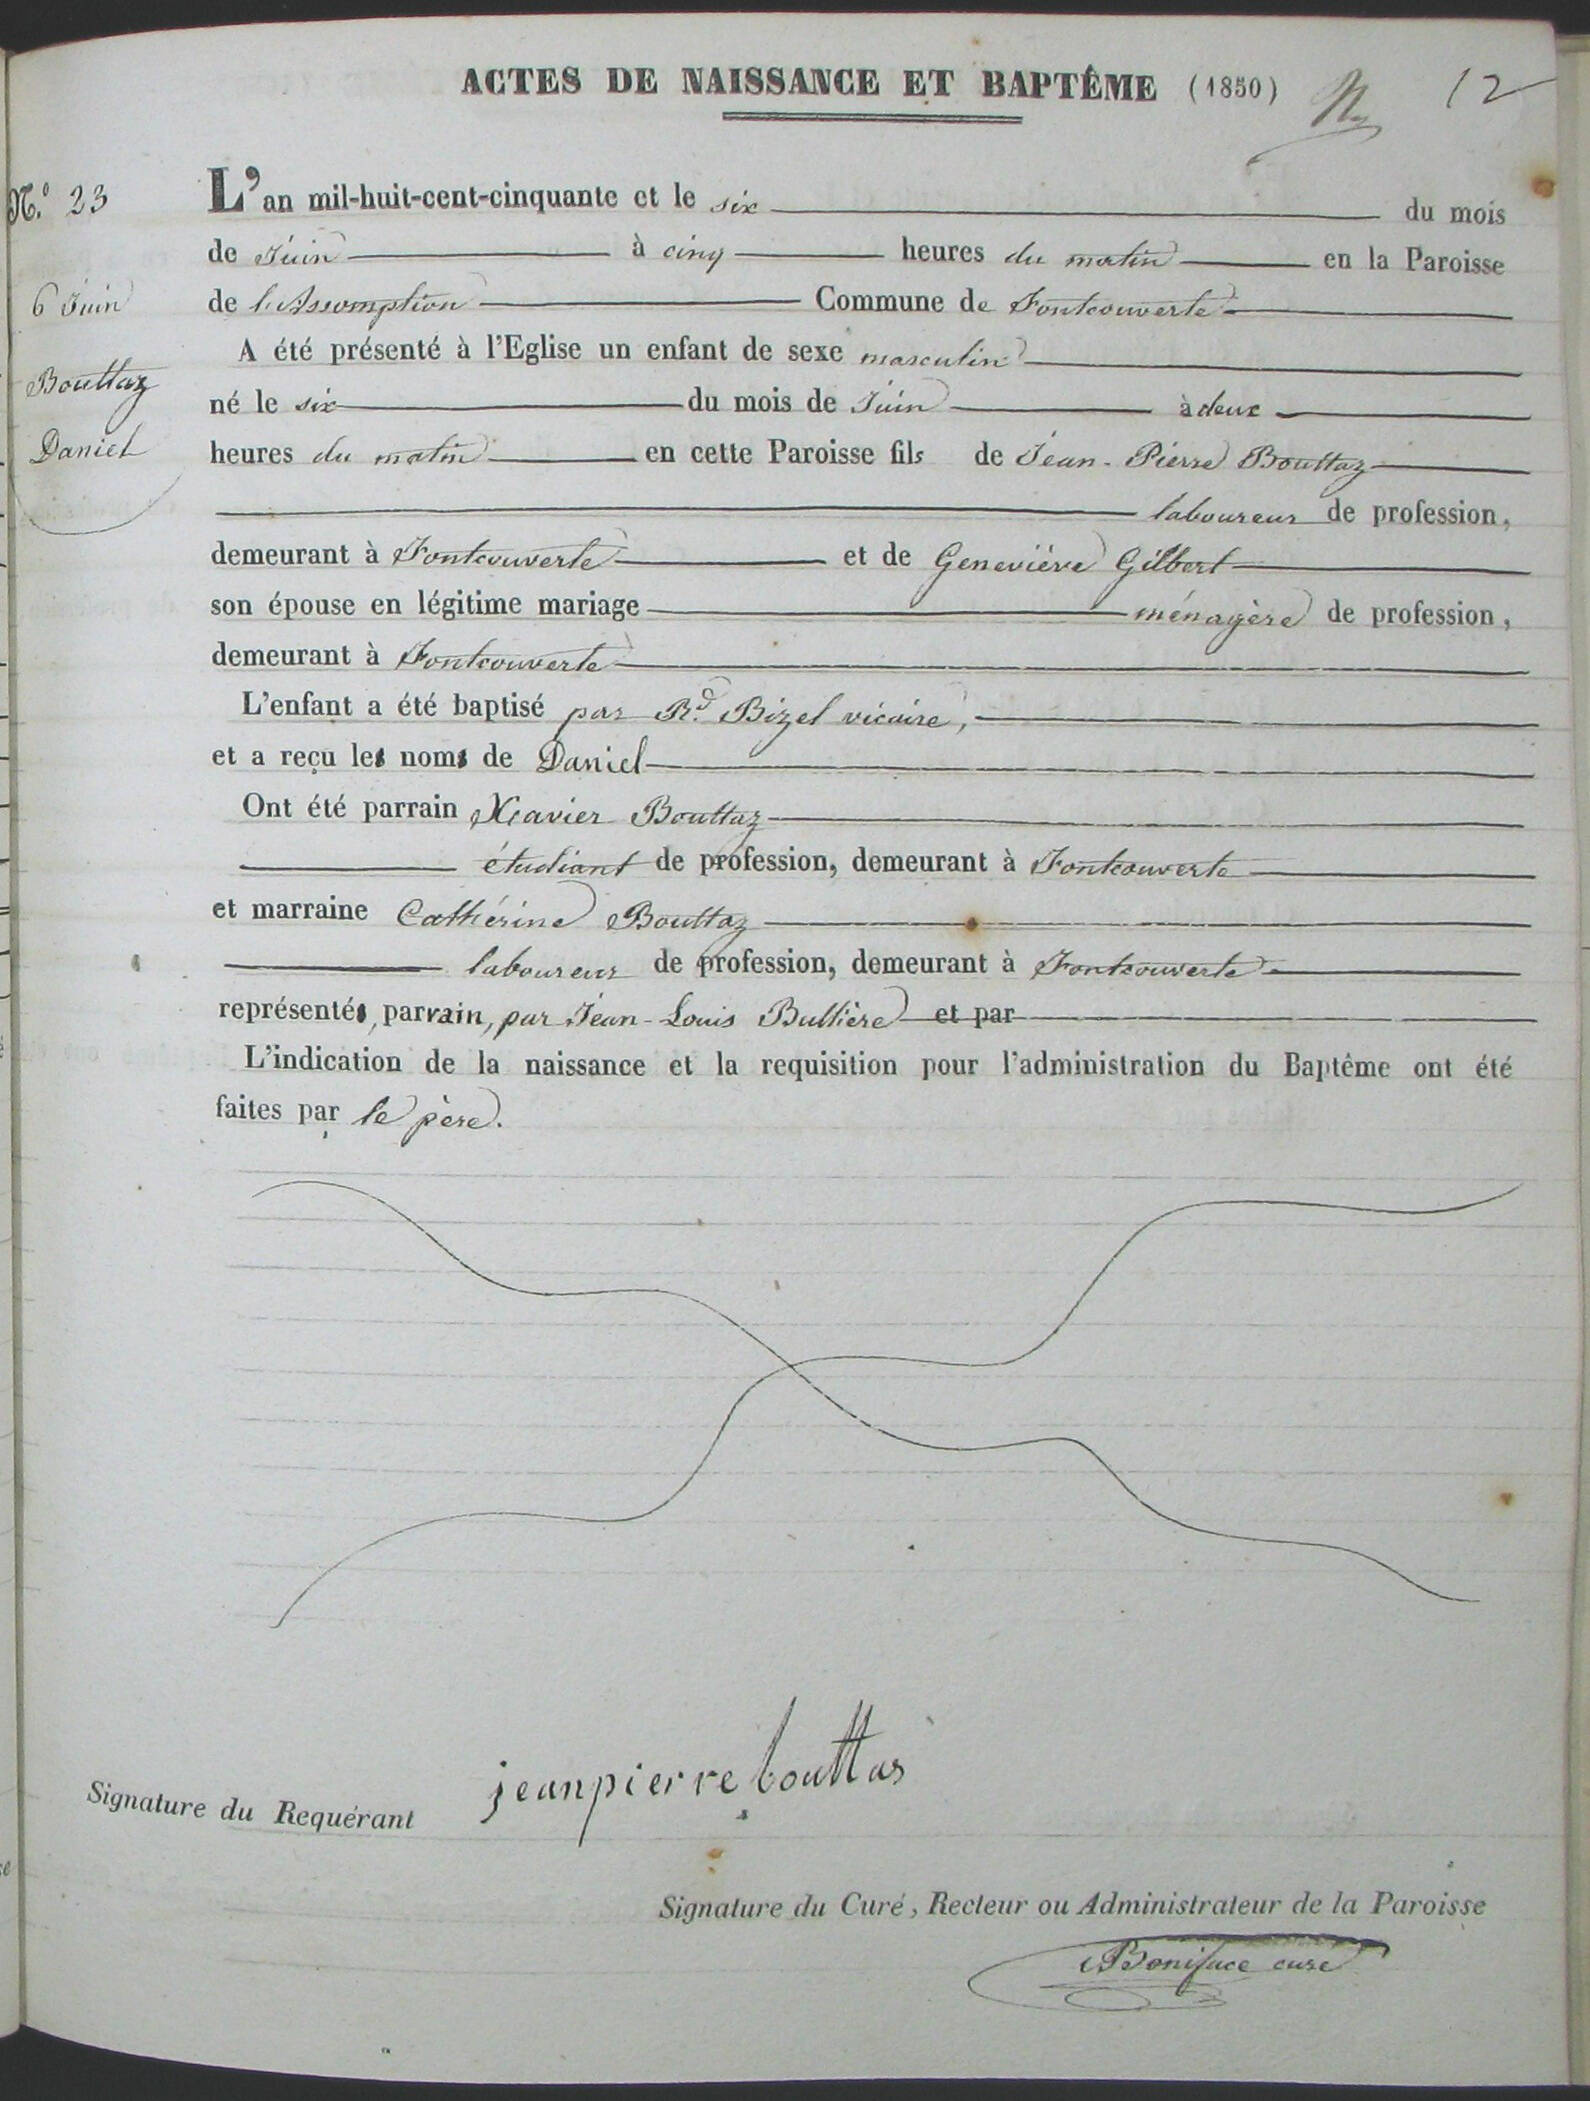 ACTES DE NAISSANCE ET BAPTÊME (1850) 12
N.º 23
6 Juin
Bouttaz
Daniel
L'an mil-huit-cent-cinquante et le six du mois
de Juin à cinq heures du matin en la Paroisse
de l'Assomption Commune de Fontcouverte
A été présenté à l'Eglise un enfant de sexe masculin
né le six du mois de Juin à deux
heures du matin en cette Paroisse fils de Jean-Pierre Bouttaz
laboureur de profession,
demeurant à Fontcouverte et de Geneviève Gilbert
son épouse en légitime mariage ménagère de profession,
demeurant à Fontcouverte
L'enfant a été baptisé par R.d Bizel vicaire,
et a reçu les noms de Daniel
Ont été parrain Xavier Bouttaz
étudiant de profession, demeurant à Fontcouverte
et marraine Cathérine Bouttaz
laboureur de profession, demeurant à Fontcouverte
représentés, parrain, par Jean-Louis Bullière et par
L'indication de la naissance et la requisition pour l'administration du Baptême ont été
faites par le père.
Signature du Requérant jeanpierre bouttas
Signature du Curé, Recteur ou Administrateur de la Paroisse
Boniface curé